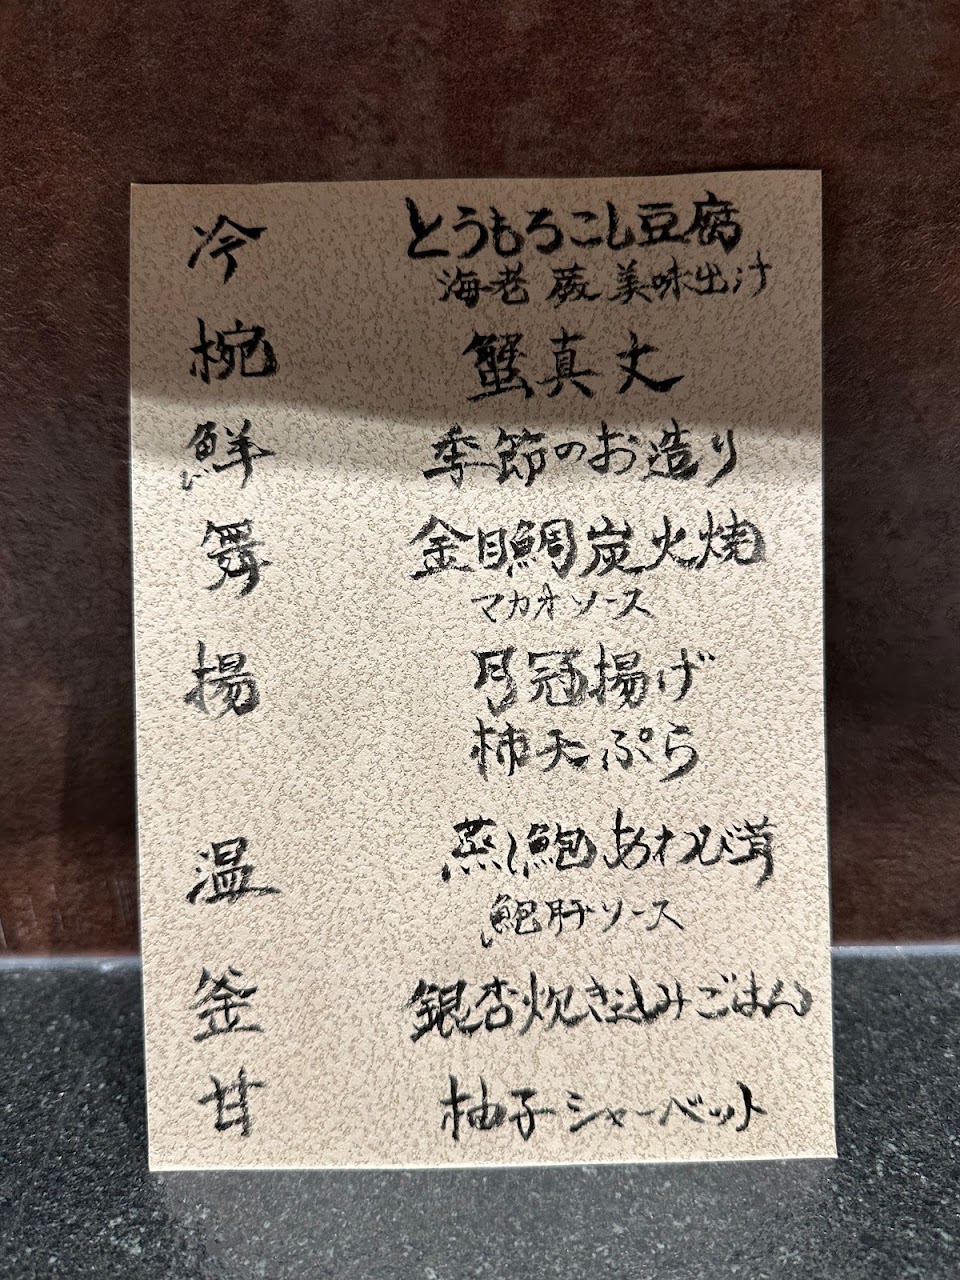 冷 とうもろこし豆腐
海老 蕨 美味出汁
椀 蟹真丈
鮮 季節のお造り
舞 金目鯛炭火焼
マカオソース
揚 月冠揚げ
柿天ぷら
温 蒸し鮑 あわび茸
鮑肝ソース
釜 銀杏炊き込みごはん
甘 柚子シャーベット